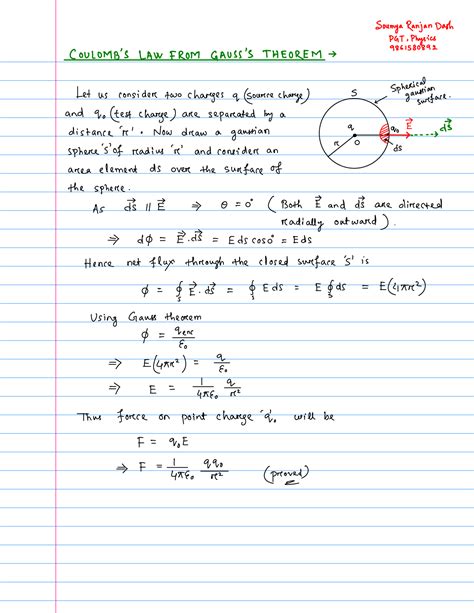 Soumya Ranjan Dash
PGT, Physics
9861580892
COULOMB'S LAW FROM GAUSS'S THEOREM →
Let us consider two charges q (source charge)
and q₀ (test charge) are separated by a
distance 'r'. Now draw a gaussian
sphere 's' of radius 'r' and consider an
area element ds over the surface of
the sphere.
S
Spherical
gaussian
surface.
q
q₀
E⃗
dS⃗
r
O
ds
As dS⃗ || E⃗ ⇒ θ = 0° ( Both E⃗ and dS⃗ are directed
radially outward ).
⇒ dϕ = E⃗ . dS⃗ = E ds cos0° = E ds
Hence net flux through the closed surface 'S' is
ϕ = ∮ₛ E⃗ . dS⃗ = ∮ₛ E ds = E ∮ₛ ds = E(4πr²)
Using Gauss theorem
ϕ = q_enc / ε₀
⇒ E(4πr²) = q / ε₀
⇒ E = 1/4πε₀ q/r²
Thus force on point charge 'q₀' will be
F = q₀E
⇒ F = 1/4πε₀ qq₀/r² (proved)